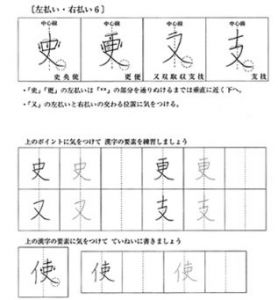 ［左払い・右払い６］
中心線 中心線 中心線 中心線
史 更 又 支
史央使 更便 又双取収支技 支技
・「史」「更」の左払いは「　」の部分を通りぬけるまでは垂直に近く下へ。
・「又」の左払いと右払いの交わる位置に気をつける。
上のポイントに気をつけて 漢字の要素を練習しましょう
史 史 更 更
又 又 支 支
上の漢字の要素に気をつけて ていねいに書きましょう
使 使 使